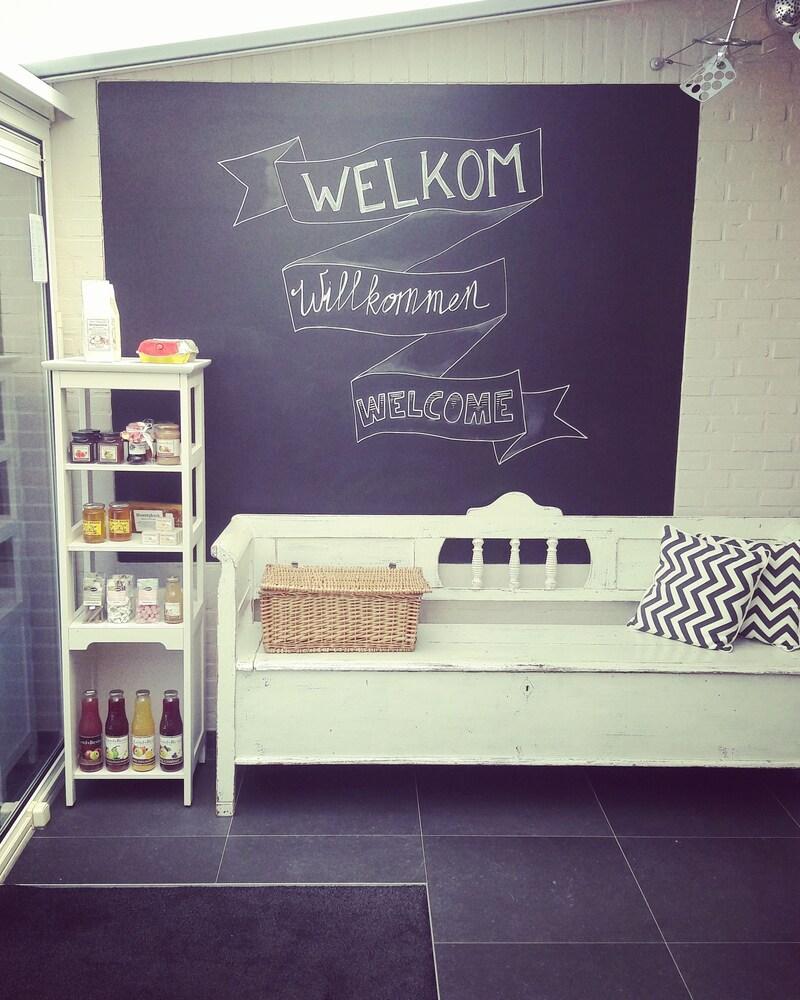 WELKOM
Willkommen
WELCOME